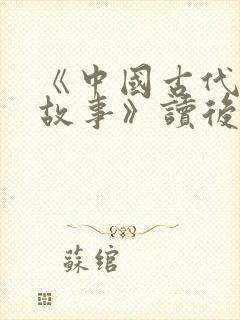 《中國古代
故事》讀後
蘇綰